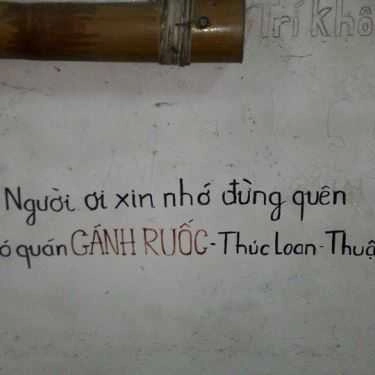 Trí khô
Người ơi xin nhớ đừng quên
ó quán GÁNH RUỐC-Thúc Loan-Thuậ